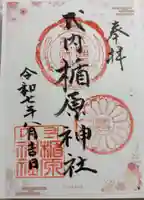 奉拝
式内楯原神社
令和七年八月吉日